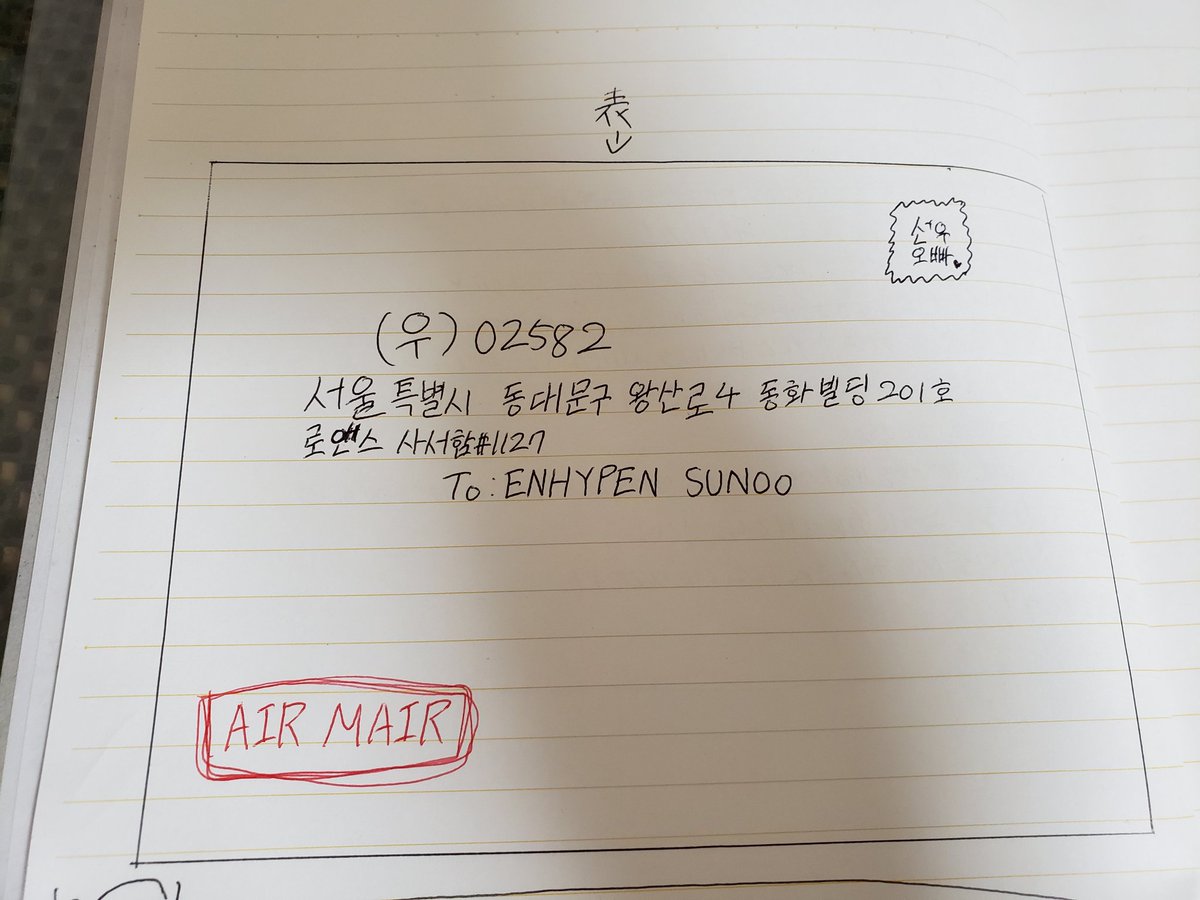 表
선우
오빠
(우) 02582
서울특별시 동대문구 왕산로4 동화빌딩201호
사서함#1127
To: ENHYPEN SUNOO
AIR MAIR